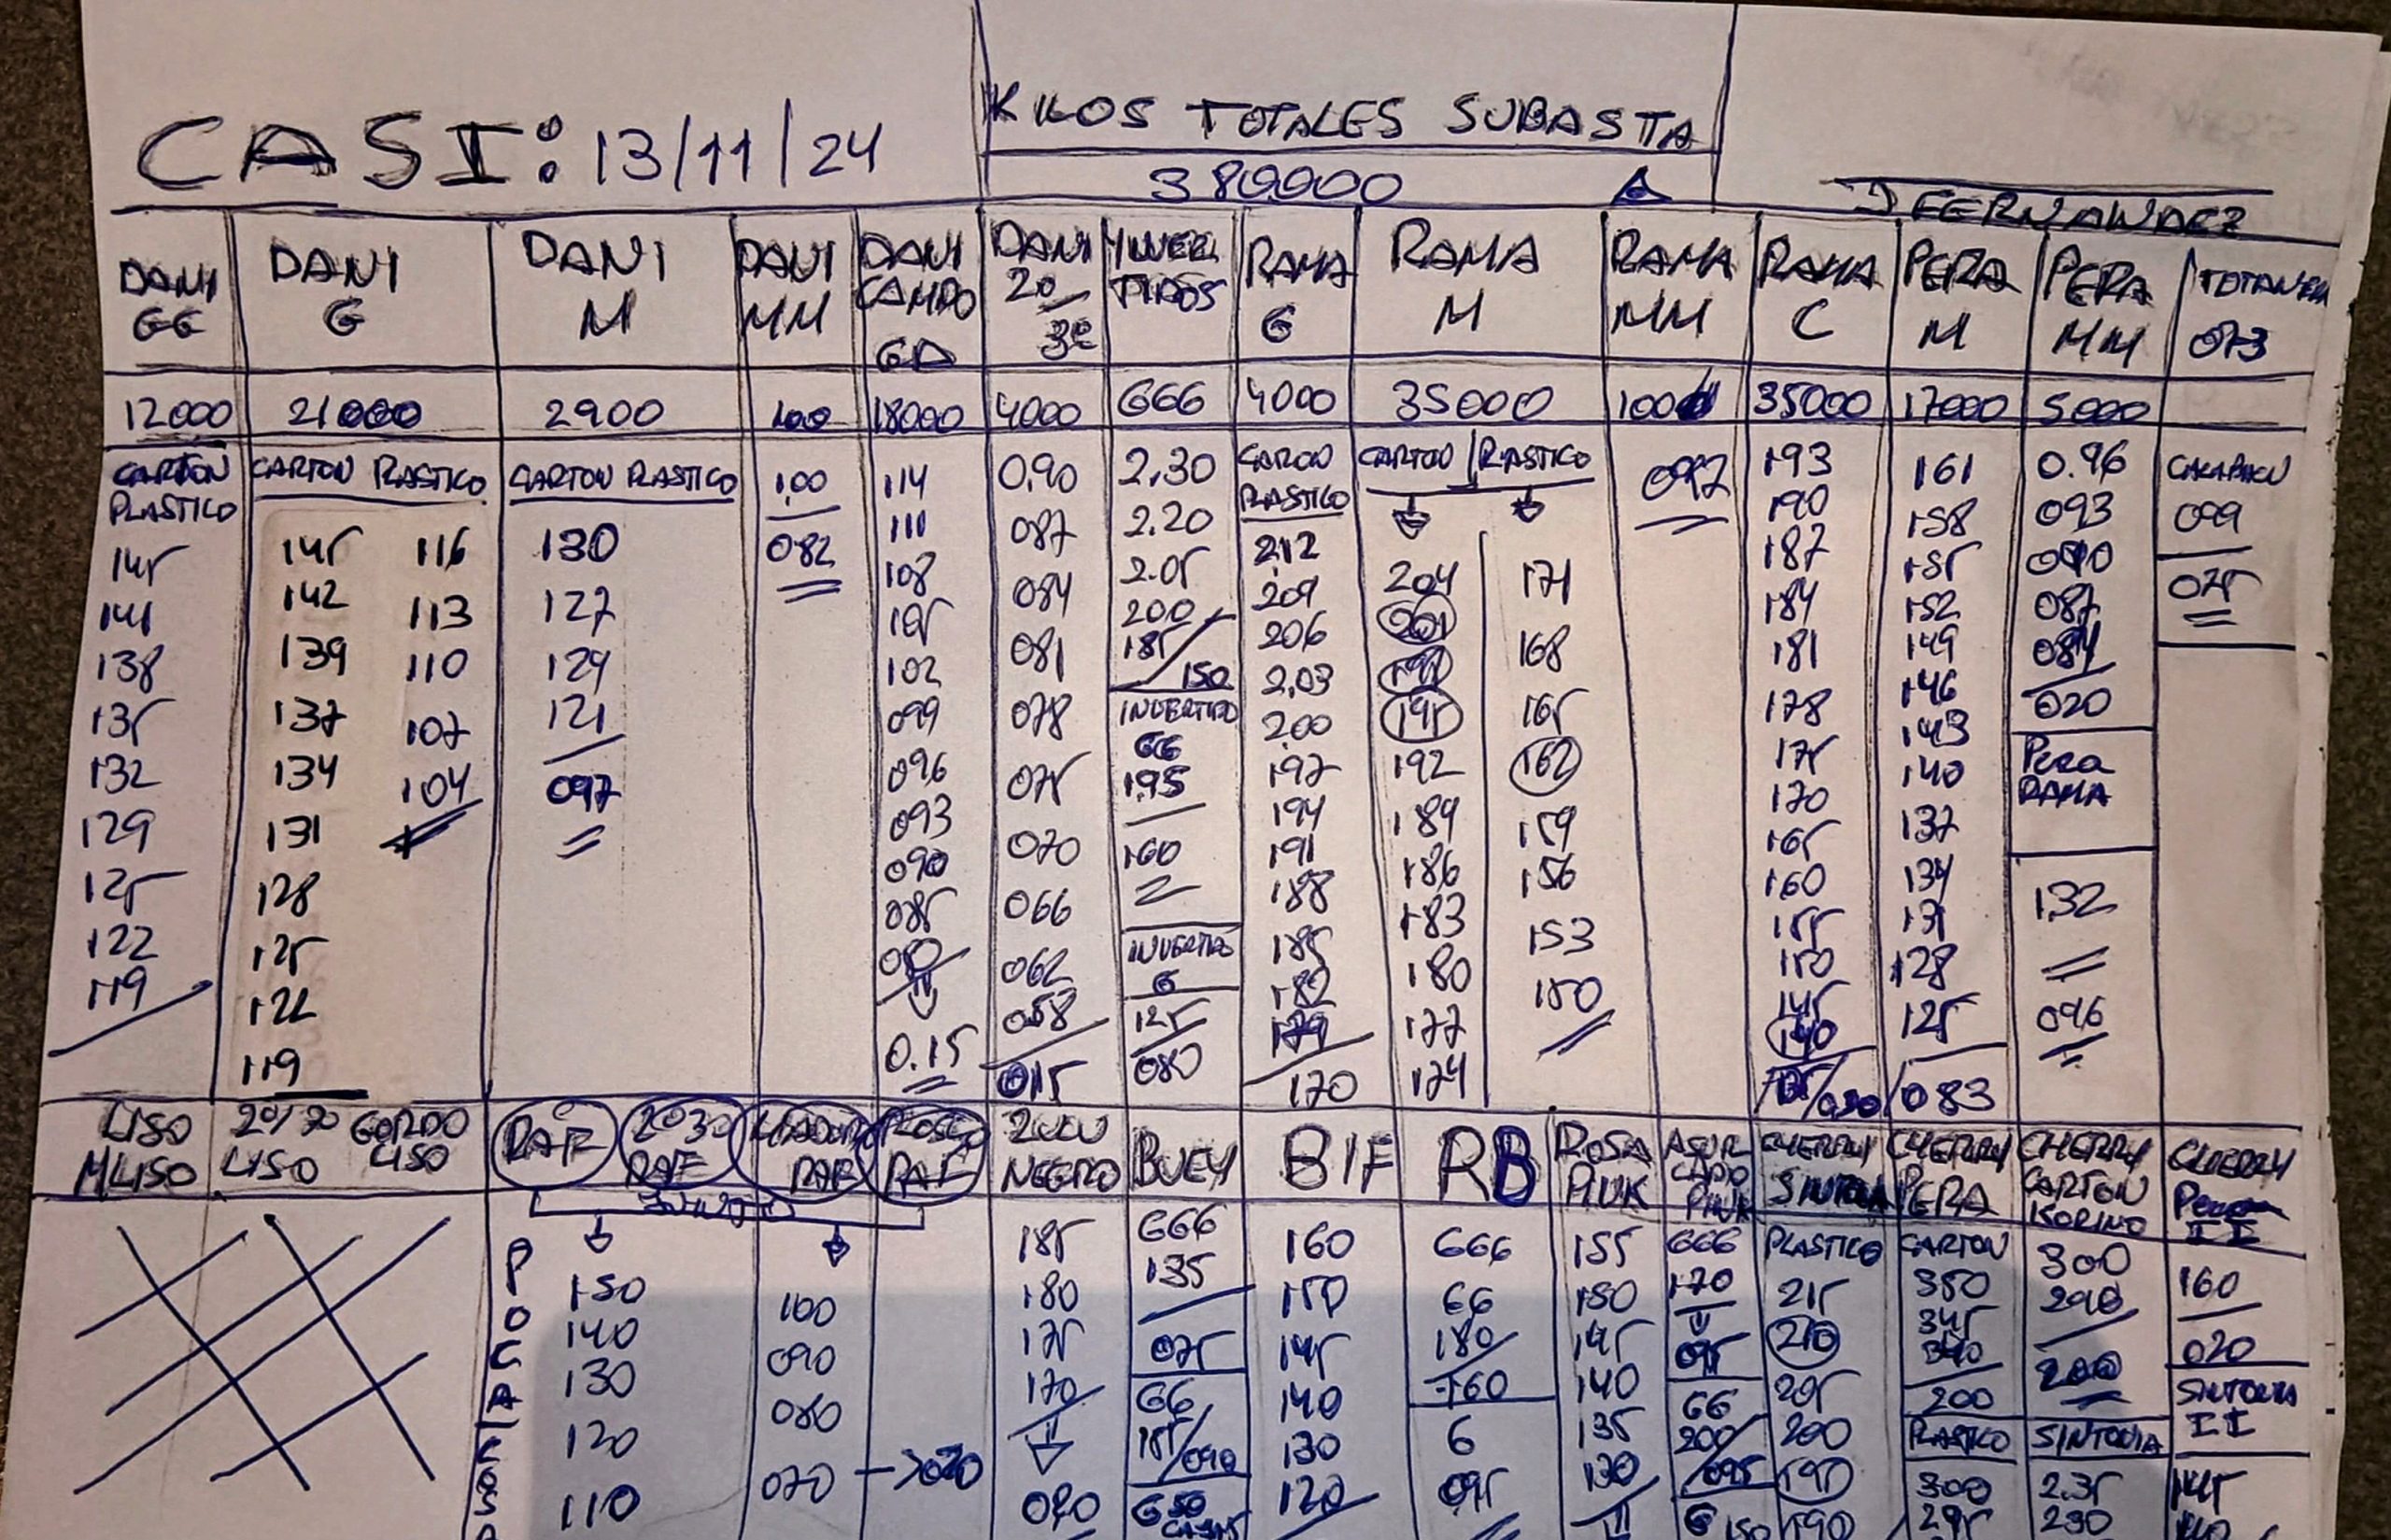 KILOS TOTALES SUBASTA
CASI: 13/11/24
380000
J FERNANDEZ
DANI GG
DANI G
DANI M
DANI MM
DANI CAMPO
DANI 20/30
RAMA G
RAMA M
RAMA MM
RAMA C
PERA M
PERA MM
073
12000 21000 2900 100 18000 4000 666 4000 35000 1000 35000 17000 5000
CARTON PLASTICO
145
141
138
135
132
129
125
122
119
CARTON PLASTICO
145 116
142 113
139 110
137 107
134 104
131
128
125
122
119
CARTON PLASTICO
130
127
124
121
097
1,00
082
114
110
108
105
102
099
096
093
090
085
080
0.15
0,90
087
084
081
078
075
070
066
062
058
015
2,30
2.20
2.05
200
185
150
INVERTIDO
66
1.95
160
INVERTIDO
G
125
080
CARTON
PLASTICO
2.12
209
206
2,03
200
197
194
191
188
185
182
179
170
CARTON PLASTICO
204 171
201 168
198 165
195 162
192 159
189 156
186 153
183 150
180
177
174
097
193
190
187
184
181
178
175
170
165
160
155
150
145
140
161
158
155
152
149
146
143
140
137
134
131
128
125
083
0.96
093
090
087
084
020
PERA
RAMA
1,32
096
099
075
LISO
MLISO
20/30 GORDO
LISO LISO
RAF
20 30
RAF
RAF
RAF
NEGRO
BUEY
BIF
RB
ROSA
PINK
ASUR
PINK
CHERRY
CHERRY
PERA
CHERRY
CARTON
CHERRY
PERA
II
POCA
150
140
130
120
110
100
090
080
070
185
180
175
170
666
135
075
66
185/090
160
150
145
140
130
120
666
66
180
160
6
095
155
150
145
140
135
130
666
170
095
66
200
095
150
PLASTICO
215
210
205
200
195
190
CARTON
350
345
340
200
PLASTICO
300
295
300
290
200
SINTONIA
2.35
230
160
020
SINTONIA
II